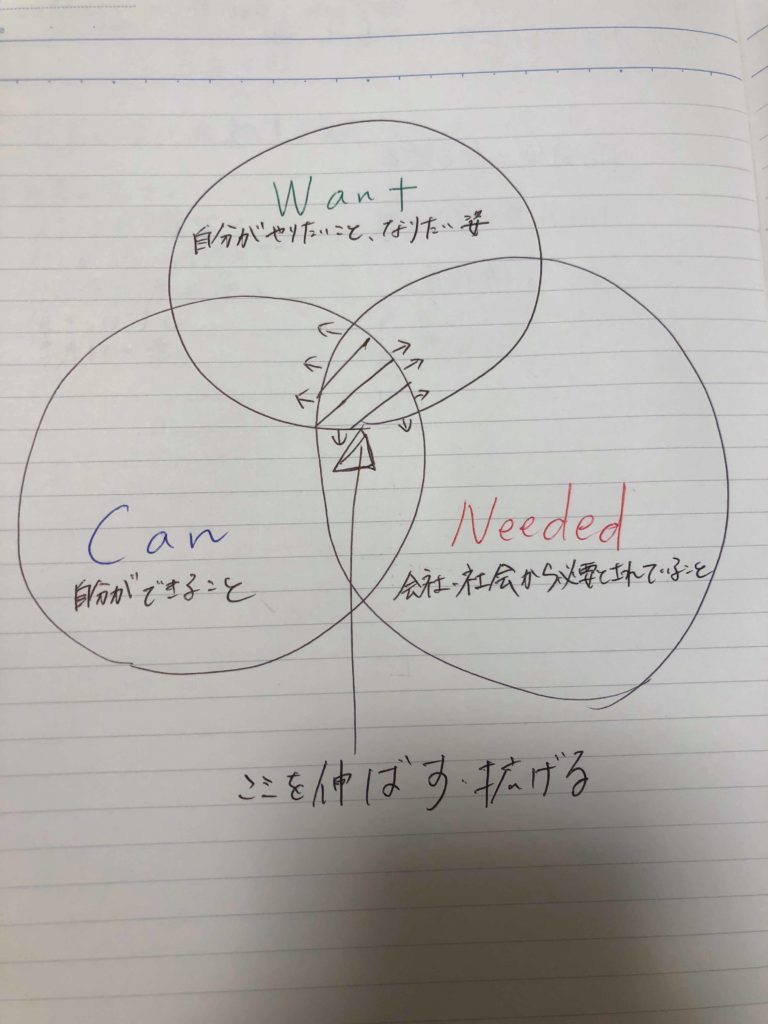 Want
自分がやりたいこと、なりたい姿
Can
自分ができること
Needed
会社・社会から必要とされていること
ここを伸ばす・拡げる